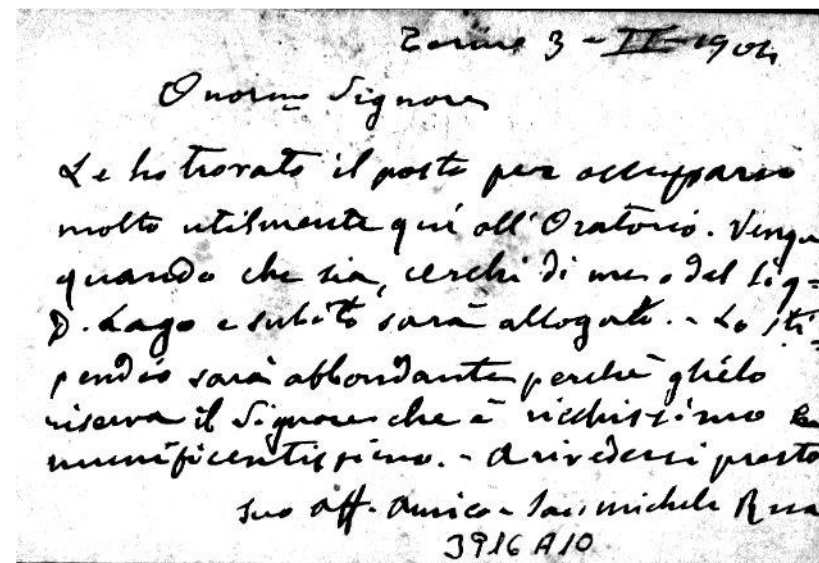 Torino 3 - II - 1904
Onormo Signore
Le ho trovato il posto per occuparsi
molto utilmente qui all'Oratorio. Venga
quando che sia, cerchi di me o del Sig=
D. Lago e subito sarà allogato. - Lo sti-
pendio sarà abbondante perchè gliélo
riserva il Signore che è ricchissimo e
munificentissimo. - Arivederci presto
Suo aff. Amico Sac. Michele Rua
3916 A10